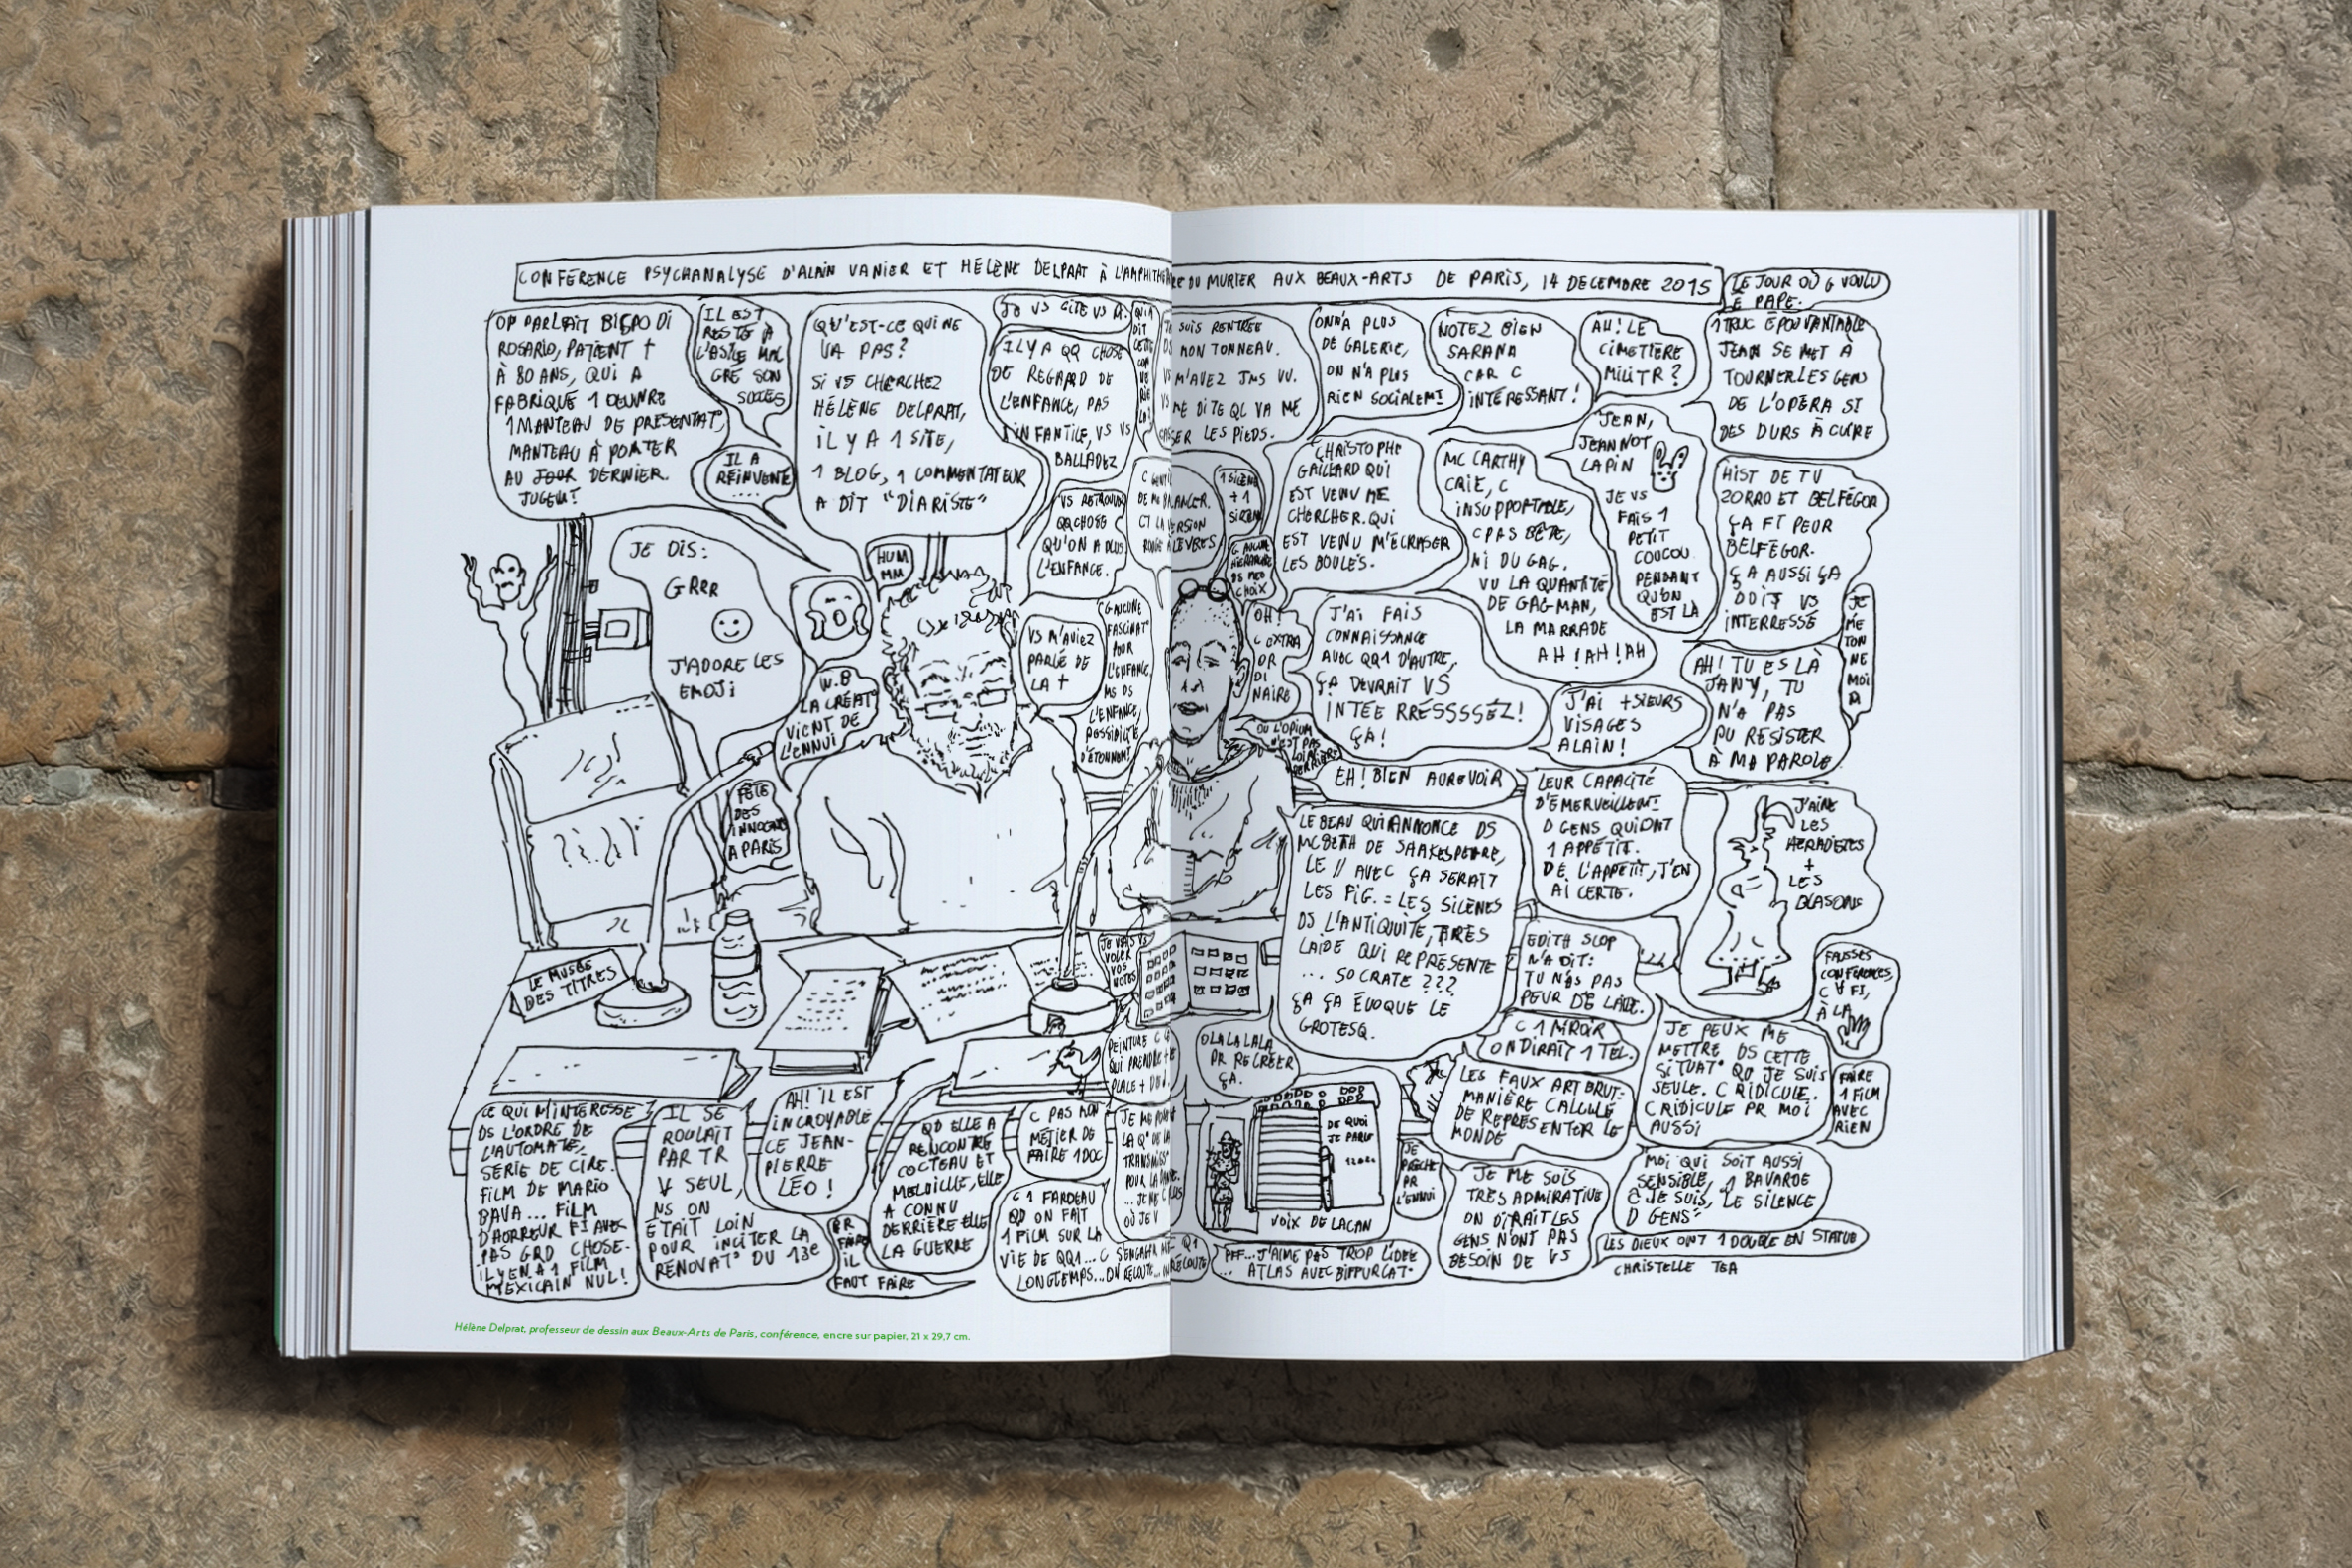 CONFÉRENCE PSYCHANALYSE D'ALAIN VANIER ET HÉLÈNE DELPRAT À L'AMPHITHÉÂTRE DU MURIER AUX BEAUX-ARTS DE PARIS, 14 DECEMBRE 2015
LE JOUR OÙ G VOULU
E PAPE.
OP PARLAIT BISPO DI
ROSARIO, PATIENT †
À 80 ANS, QUI A
FABRIQUÉ 1 OEUVRE
1 MANTEAU DE PRESENTAT°,
MANTEAU À PORTER
AU JOUR DERNIER.
JUGEMT
IL EST
RESTÉ À
L'ASILE MAL
GRÉ SON
SUCCÈS
IL A
RÉINVENTÉ
....
QU'EST-CE QUI NE
VA PAS?
SI VS CHERCHEZ
HÉLÈNE DELPRAT,
IL Y A 1 SITE,
1 BLOG, 1 COMMENTATEUR
A DIT "DIARISTE"
JE VS CITE VS
IL Y A QQ CHOSE
DE REGARD DE
L'ENFANCE, PAS
INFANTILE, VS VS
BALLADEZ
VS RETROUVEZ
QQCHOSE
QU'ON A PLUS
L'ENFANCE.
SUIS RENTRÉE
MON TONNEAU.
M'AVEZ JMS VU.
ME DITE QL VA ME
CASSER LES PIEDS.
1 SILÈNE
+ 1
SIRÈNE
ON N'A PLUS
DE GALERIE,
ON N'A PLUS
RIEN SOCIALEMT
NOTEZ BIEN
SARANA
CAR C
INTÉRESSANT!
AH! LE
CIMETIÈRE
MILITR?
1 TRUC ÉPOUVANTABLE
JEAN SE MET À
TOURNER LES GENS
DE L'OPÉRA SI
DES DURS À CUIRE
JEAN,
JEANNOT
LAPIN
JE VS
FAIS 1
PETIT
COUCOU
PENDANT
QU'ON
EST LÀ
CHRISTOPHE
GAILLARD QUI
EST VENU ME
CHERCHER. QUI
EST VENU M'ÉCRASER
LES BOULES.
MC CARTHY
CRIE, C
INSUPPORTABLE,
C PAS BÊTE,
NI DU GAG.
VU LA QUANTITÉ
DE GAG-MAN,
LA MARRADE
AH! AH! AH
HIST DE TV
ZORRO ET BELFÉGOR
ÇA FT PEUR
BELFÉGOR.
ÇA AUSSI ÇA
DOIT VS
INTERRESSÉ
JE
ME
TON
NE
MOI
JE DIS:
GRRR
J'ADORE LES
EMOJI
HUM
MM
W.B
LA CRÉAT°
VIENT DE
L'ENNUI
VS M'AVIEZ
PARLÉ DE
LA †
G AUCUNE
FASCINAT°
POUR
L'ENFANCE,
MS DS
L'ENFANCE,
POSSIBILITÉ
D'ÉTONNEMT
OH!
C EXTRA
OR
DI
NAIRE
J'AI FAIS
CONNAISSANCE
AVEC QQ1 D'AUTRE,
ÇA DEVRAIT VS
INTÉE RRÉSSSSÉZ!
ÇA!
J'AI +SIEURS
VISAGES
ALAIN!
AH! TU ES LÀ
JANY, TU
N'A PAS
PU RÉSISTER
À MA PAROLE
OU L'OPIUM
N'EST PAS
LOIN
DERRIÈRE
EH! BIEN AUREVOIR
FÊTE
DES
INNOCENTS
A PARIS
LE BEAU QUI ANNONCE DS
MCBETH DE SHAKESPEARE,
LE // AVEC ÇA SERAIT
LES FIG. = LES SILÈNES
DS L'ANTIQUITÉ, TRÈS
LAIDE QUI REPRÉSENTE
... SOCRATE ???
ÇA ÇA ÉVOQUE LE
GROTESQ.
LEUR CAPACITÉ
D'ÉMERVEILLEMT
D GENS QUI ONT
1 APPÉTIT.
DE L'APPÉTIT, J'EN
AI CERTE.
J'AIME
LES
+
LES
BLASONS
EDITH SLOP
N'A DIT:
TU N'AS PAS
PEUR DE L'AIDE.
FAUSSES
CONFÉRENCES,
À LA
LE MUSÉE
DES TITRES
JE VAIS VS
VOLER
VOS
NOTES
C 1 MIROIR
ON DIRAIT 1 TEL.
JE PEUX ME
METTRE DS CETTE
SITUAT° QD JE SUIS
SEULE. C RIDICULE.
C RIDICULE PR MOI
AUSSI
FAIRE
1 FILM
AVEC
RIEN
OLALALALA
PR RECRÉER
ÇA.
LES FAUX ART BRUT:
MANIÈRE CALCULÉ
DE REPRÉSENTER LE
MONDE
DE QUOI
JE PARLE
VOIX DE LACAN
JE
PRÊCHE
PR
L'ENNUI
CE QUI M'INTÉRESSE
DS L'ORDRE DE
L'AUTOMATE,
SÉRIE DE CIRE.
FILM DE MARIO
BAVA... FILM
D'HORREUR FI AVEC
PAS GRD CHOSE.
IL Y EN A 1 FILM
MEXICAIN NUL!
IL SE
ROULAIT
PAR TR
V SEUL,
NS ON
ÉTAIT LOIN
POUR INCITER LA
RÉNOVAT° DU 13e
AH! IL EST
INCROYABLE
CE JEAN-
PIERRE
LÉO!
FAIRE
IL
FAUT FAIRE
QD ELLE A
RENCONTRÉ
COCTEAU ET
ELLE
A CONNU
DERRIÈRE ELLE
LA GUERRE
C PAS MON
MÉTIER DE
FAIRE 1 DOC
C 1 FARDEAU
QD ON FAIT
1 FILM SUR LA
VIE DE QQ1...
LONGTEMPS...
PFF... J'AIME PAS TROP L'IDÉE
... ATLAS AVEC BIFFURCAT°
JE ME SUIS
TRÈS ADMIRATIVE
ON DIRAIT LES
GENS N'ONT PAS
BESOIN DE VS
MOI QUI SOIT AUSSI
SENSIBLE, 1 BAVARDE
C JE SUIS, LE SILENCE
D GENS
LES DIEUX ONT 1 DOUBLE EN STATUE
CHRISTELLE TEA
Hélène Delprat, professeur de dessin aux Beaux-Arts de Paris, conférence, encre sur papier, 21 x 29,7 cm.